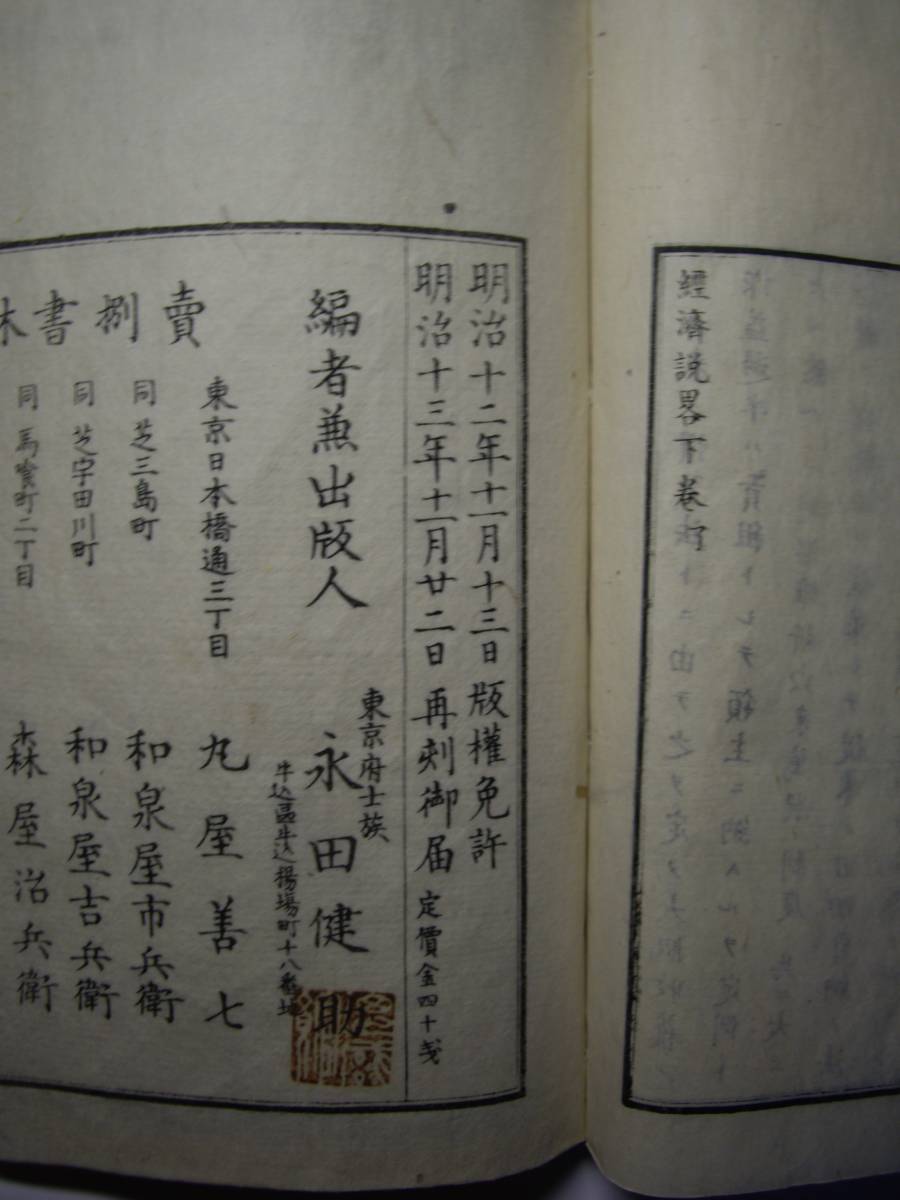 經濟說畧下卷 了
明治十二年十一月十三日版權免許
明治十三年十一月廿二日再刻御届 定價金四十戔
編者兼出版人 東京府士族 永田健助
牛込區牛込揚場町十八番地
賣捌書林
東京日本橋通三丁目 丸屋善七
同 芝三島町 和泉屋市兵衛
同 芝宇田川町 和泉屋吉兵衛
同 馬喰町二丁目 森屋治兵衛